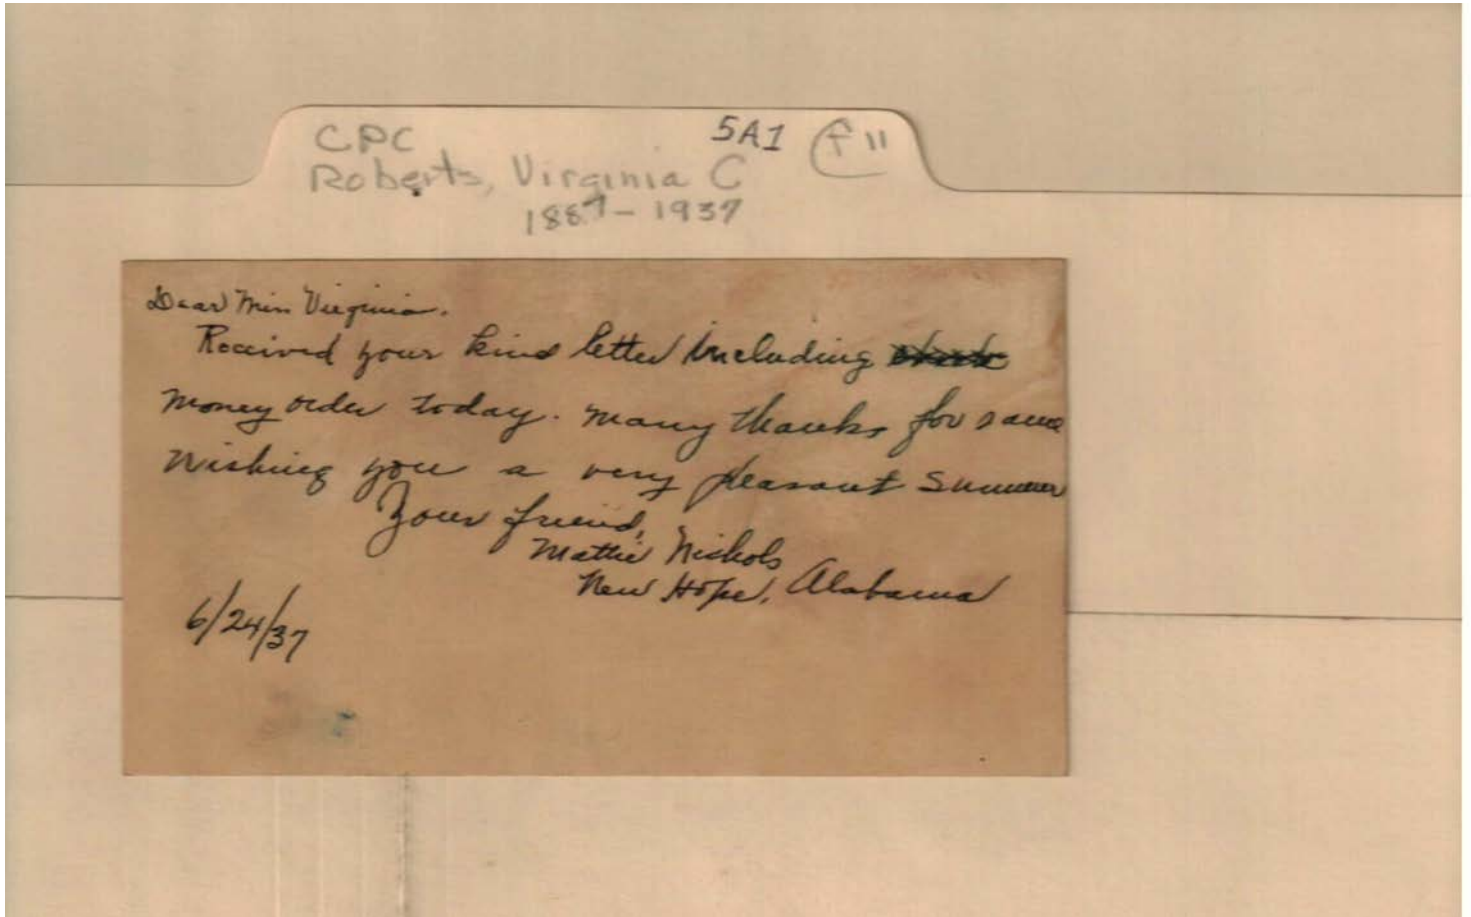 CPC 5A1
Roberts, Virginia C
1887-1937
Dear Miss Virginia.
Received your kind letter including
money order today. Many thanks for same
Wishing you a very pleasant summer
Your friend,
Mattie Nichols
New Hope, Alabama
6/24/37